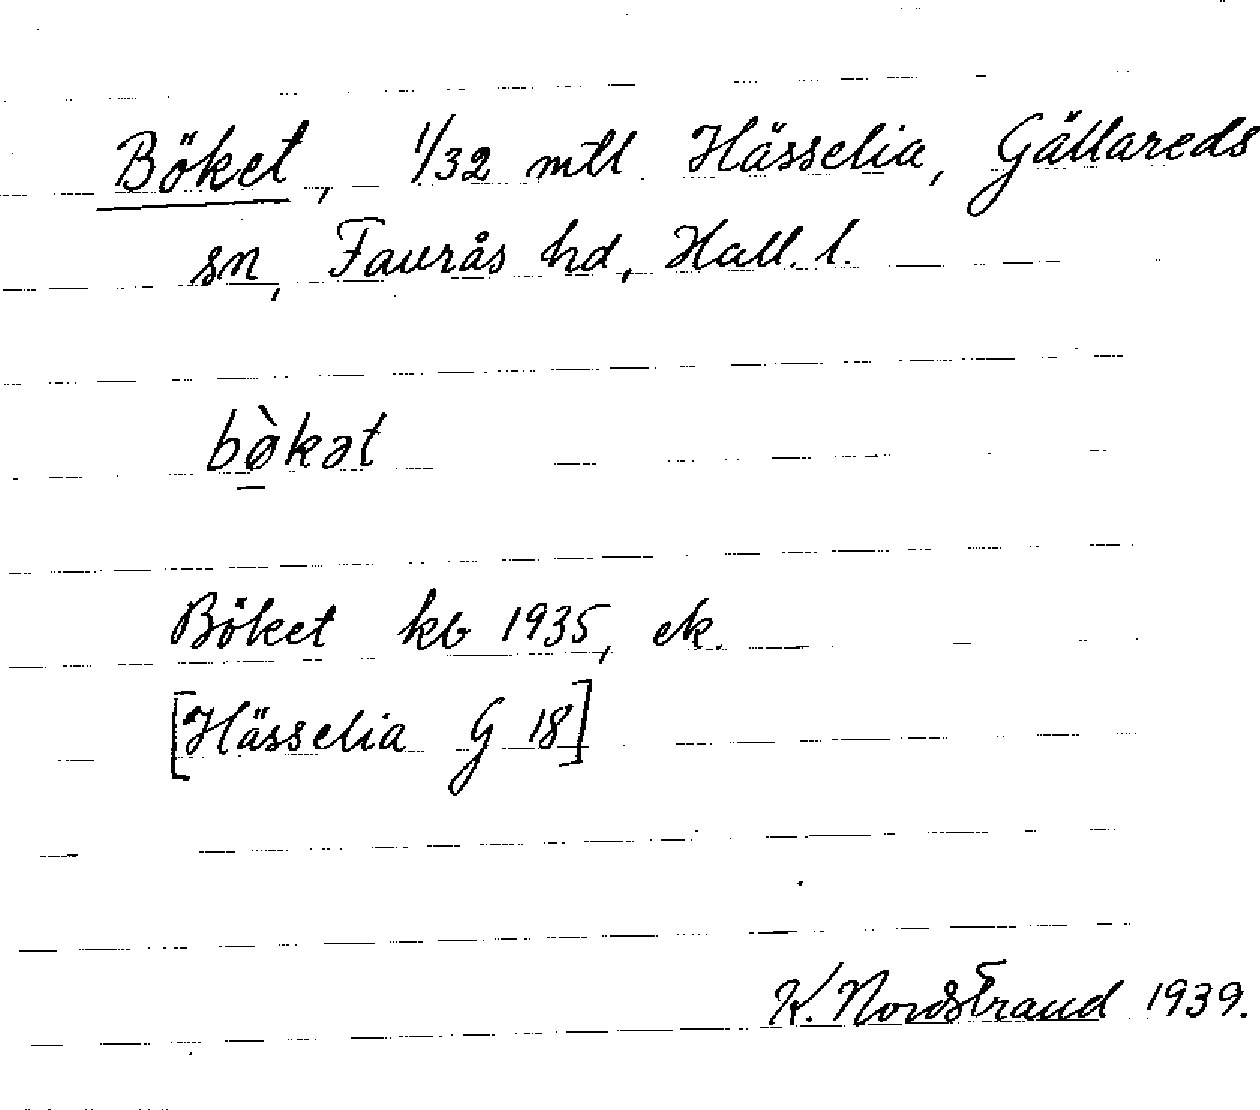 Böket, 1/32 mtl Hässelia, Gällareds
sn, Faurås hd, Hall. l.
bø̀kət
Böket kb 1935, ek.
[Hässelia G 18]
K. Nordstrand 1939.